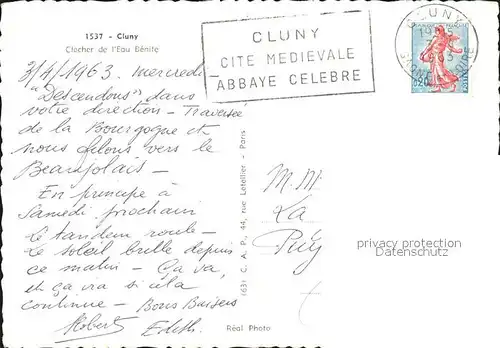 1537 - Cluny
Clocher de l'Eau Bénite
CLUNY
CITE MEDIEVALE
ABBAYE CELEBRE
CLUNY
3/4/1963. mercredi
"Descendons" dans
votre direction - Traversée
de la Bourgogne et
nous filons vers le
Beaujolais -
En principe à
Samedi prochain
Le tandem roule -
Le soleil brille depuis
ce matin - Ça va,
et ça ira si cela
continue - Bons Baisers
Robert Edith.
M. M.
La
Puy
privacy protection
Datenschutz
(63) C. A. P., 44, rue Letellier - Paris
Réal Photo